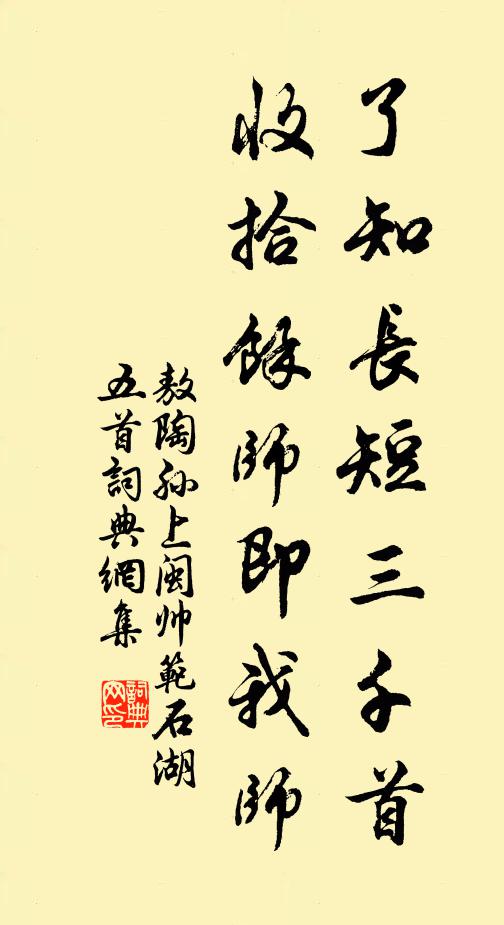 了知長短三千首
收拾餘師即我師
敖陶孙上閩帅範石湖
五首詞典網集
詞典
网印